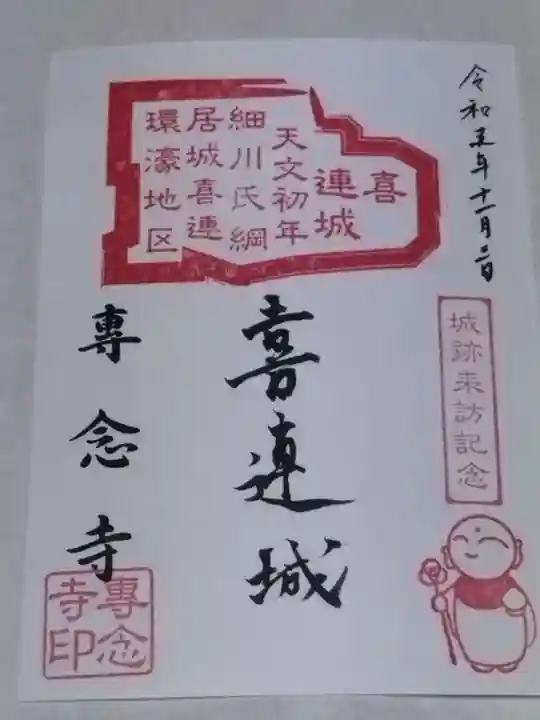 令和五年十一月二日
喜
連城
天文初年
細川氏綱
居城喜連
環濠地区
城跡来訪記念
喜連城
專念寺
專念
寺印